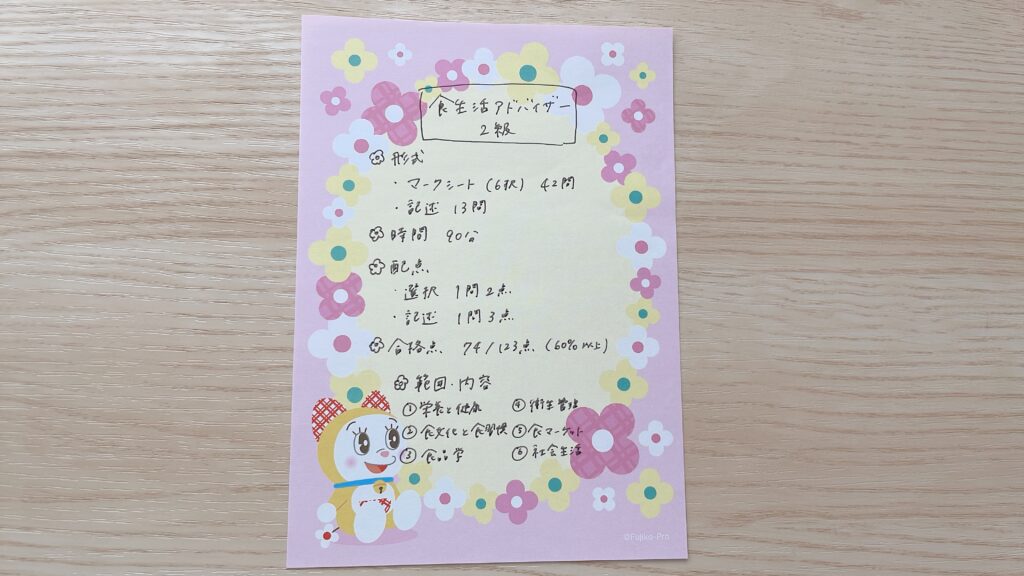 食生活アドバイザー
2級
形式
・マークシート(6択) 42問
・記述 13問
時間 90分
配点
・選択 1問2点
・記述 1問3点
合格点 74/123点 (60%以上)
範囲・内容
①栄養と健康 ④衛生管理
②食文化と食習慣 ⑤食マーケット
③食品学 ⑥社会生活
©Fujiko-Pro